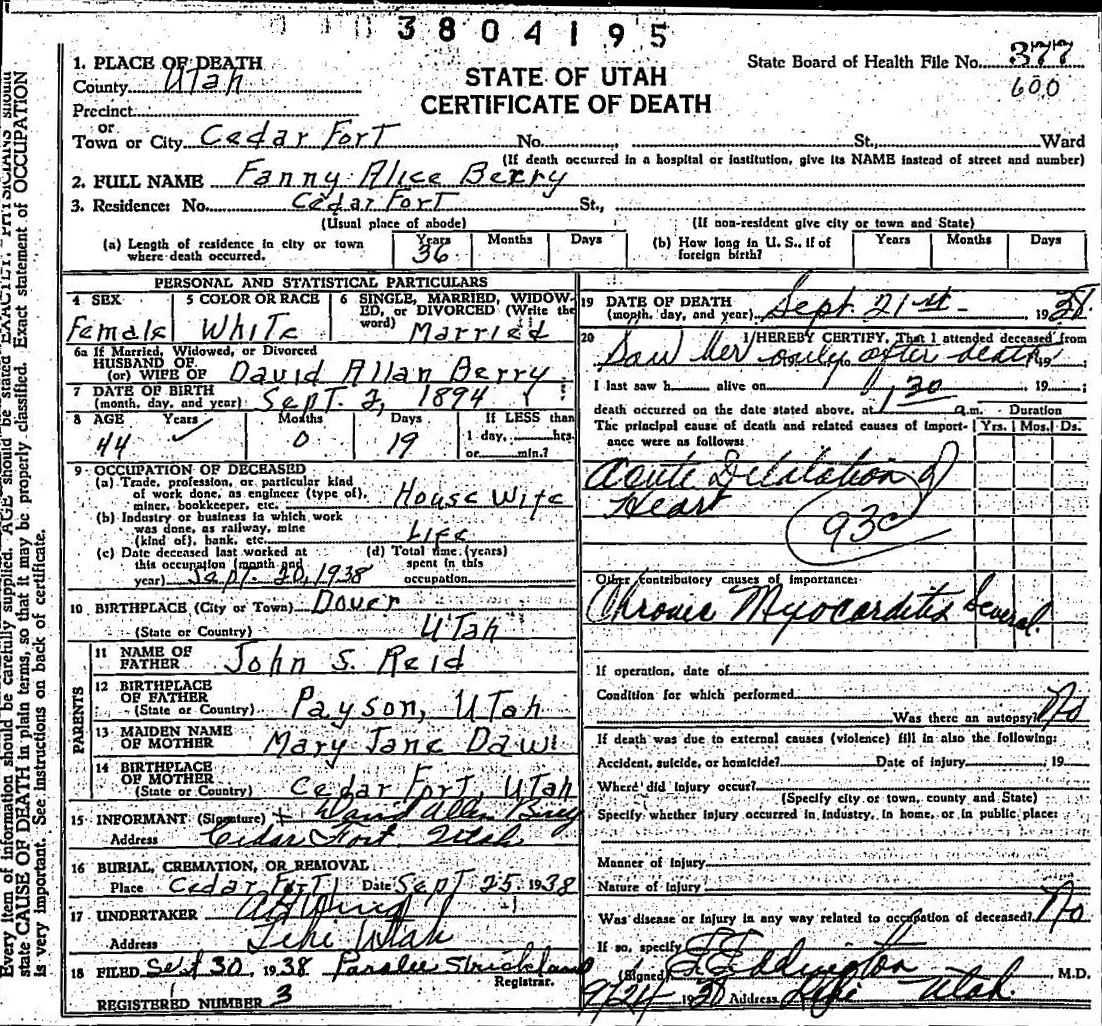 3804195
1. PLACE OF DEATH
STATE OF UTAH
CERTIFICATE OF DEATH
State Board of Health File No. 377
600
County Utah
Precinct
or
Town or City Cedar Fort No. St., Ward
(If death occurred in a hospital or institution, give its NAME instead of street and number)
2. FULL NAME Fanny Alice Berry
3. Residence: No. Cedar Fort St.,
(Usual place of abode) (If non-resident give city or town and State)
(a) Length of residence in city or town where death occurred. Years 36 Months Days
(b) How long in U. S., if of foreign birth? Years Months Days
PERSONAL AND STATISTICAL PARTICULARS
4 SEX Female
5 COLOR OR RACE White
6 SINGLE, MARRIED, WIDOW-
ED, or DIVORCED (Write the
word) Married
6a If Married, Widowed, or Divorced
HUSBAND OF
(or) WIFE OF David Allan Berry
7 DATE OF BIRTH
(month, day, and year) Sept. 2, 1894
8 AGE Years Months Days If LESS than
44 0 19 1 day, hrs.
or min.?
9 OCCUPATION OF DECEASED
(a) Trade, profession, or particular kind
of work done, as engineer (type of),
miner, bookkeeper, etc. House Wife
(b) Industry or business in which work
was done, as railway, mine
(kind of), bank, etc. Life
(c) Date deceased last worked at
this occupation (month and
year) Sept. 20, 1938
(d) Total time (years)
spent in this
occupation
10 BIRTHPLACE (City or Town) Dover
(State or Country) Utah
PARENTS
11 NAME OF
FATHER John S. Reid
12 BIRTHPLACE
OF FATHER
(State or Country) Payson, Utah
13 MAIDEN NAME
OF MOTHER Mary Jane Daw
14 BIRTHPLACE
OF MOTHER
(State or Country) Cedar Fort, Utah
15 INFORMANT (Signature) David Allen Berry
Address Cedar Fort Utah
16 BURIAL, CREMATION, OR REMOVAL
Place Cedar Fort Date Sept 25 1938
17 UNDERTAKER
Address Lehi Utah
18 FILED Sept 30, 1938 Paralee Strickland
Registrar.
REGISTERED NUMBER 3
19 DATE OF DEATH
(month, day, and year) Sept. 21st 1938
20 I HEREBY CERTIFY, That I attended deceased from
Saw her only after death 19
I last saw h alive on , 19
death occurred on the date stated above, at 1 30 a.m. Duration
The principal cause of death and related causes of import-
ance were as follows: Yrs. Mos. Ds.
Acute Dilatation of
Heart
93c
Other contributory causes of importance:
Chronic Myocarditis Several
If operation, date of
Condition for which performed
Was there an autopsy? No
If death was due to external causes (violence) fill in also the following:
Accident, suicide, or homicide? Date of injury 19
Where did injury occur?
(Specify city or town, county and State)
Specify whether injury occurred in industry, in home, or in public place:
Manner of injury
Nature of injury
Was disease or injury in any way related to occupation of deceased? No
If so, specify
(Signed) Eddington, M.D.
9/24 1938 Address Lehi Utah.
Every item of information should be carefully supplied. AGE should be stated EXACTLY. PHYSICIANS should
state CAUSE OF DEATH in plain terms, so that it may be properly classified. Exact statement of OCCUPATION
is very important. See instructions on back of certificate.